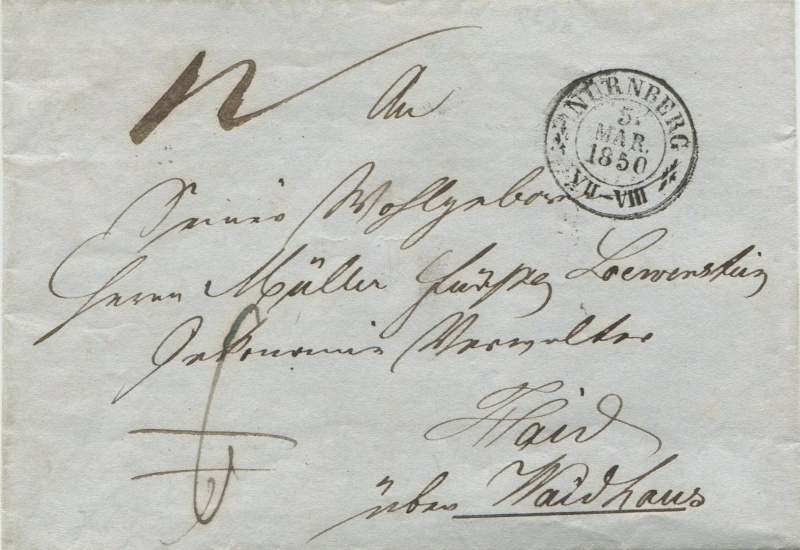 An
NÜRNBERG
5.
MÄR.
1850
VII-VIII
Seiner Wohlgeborn
Herrn Müller Fürstl Loewenstein
Oekonomie Verwalter
Waid
über Waidhaus